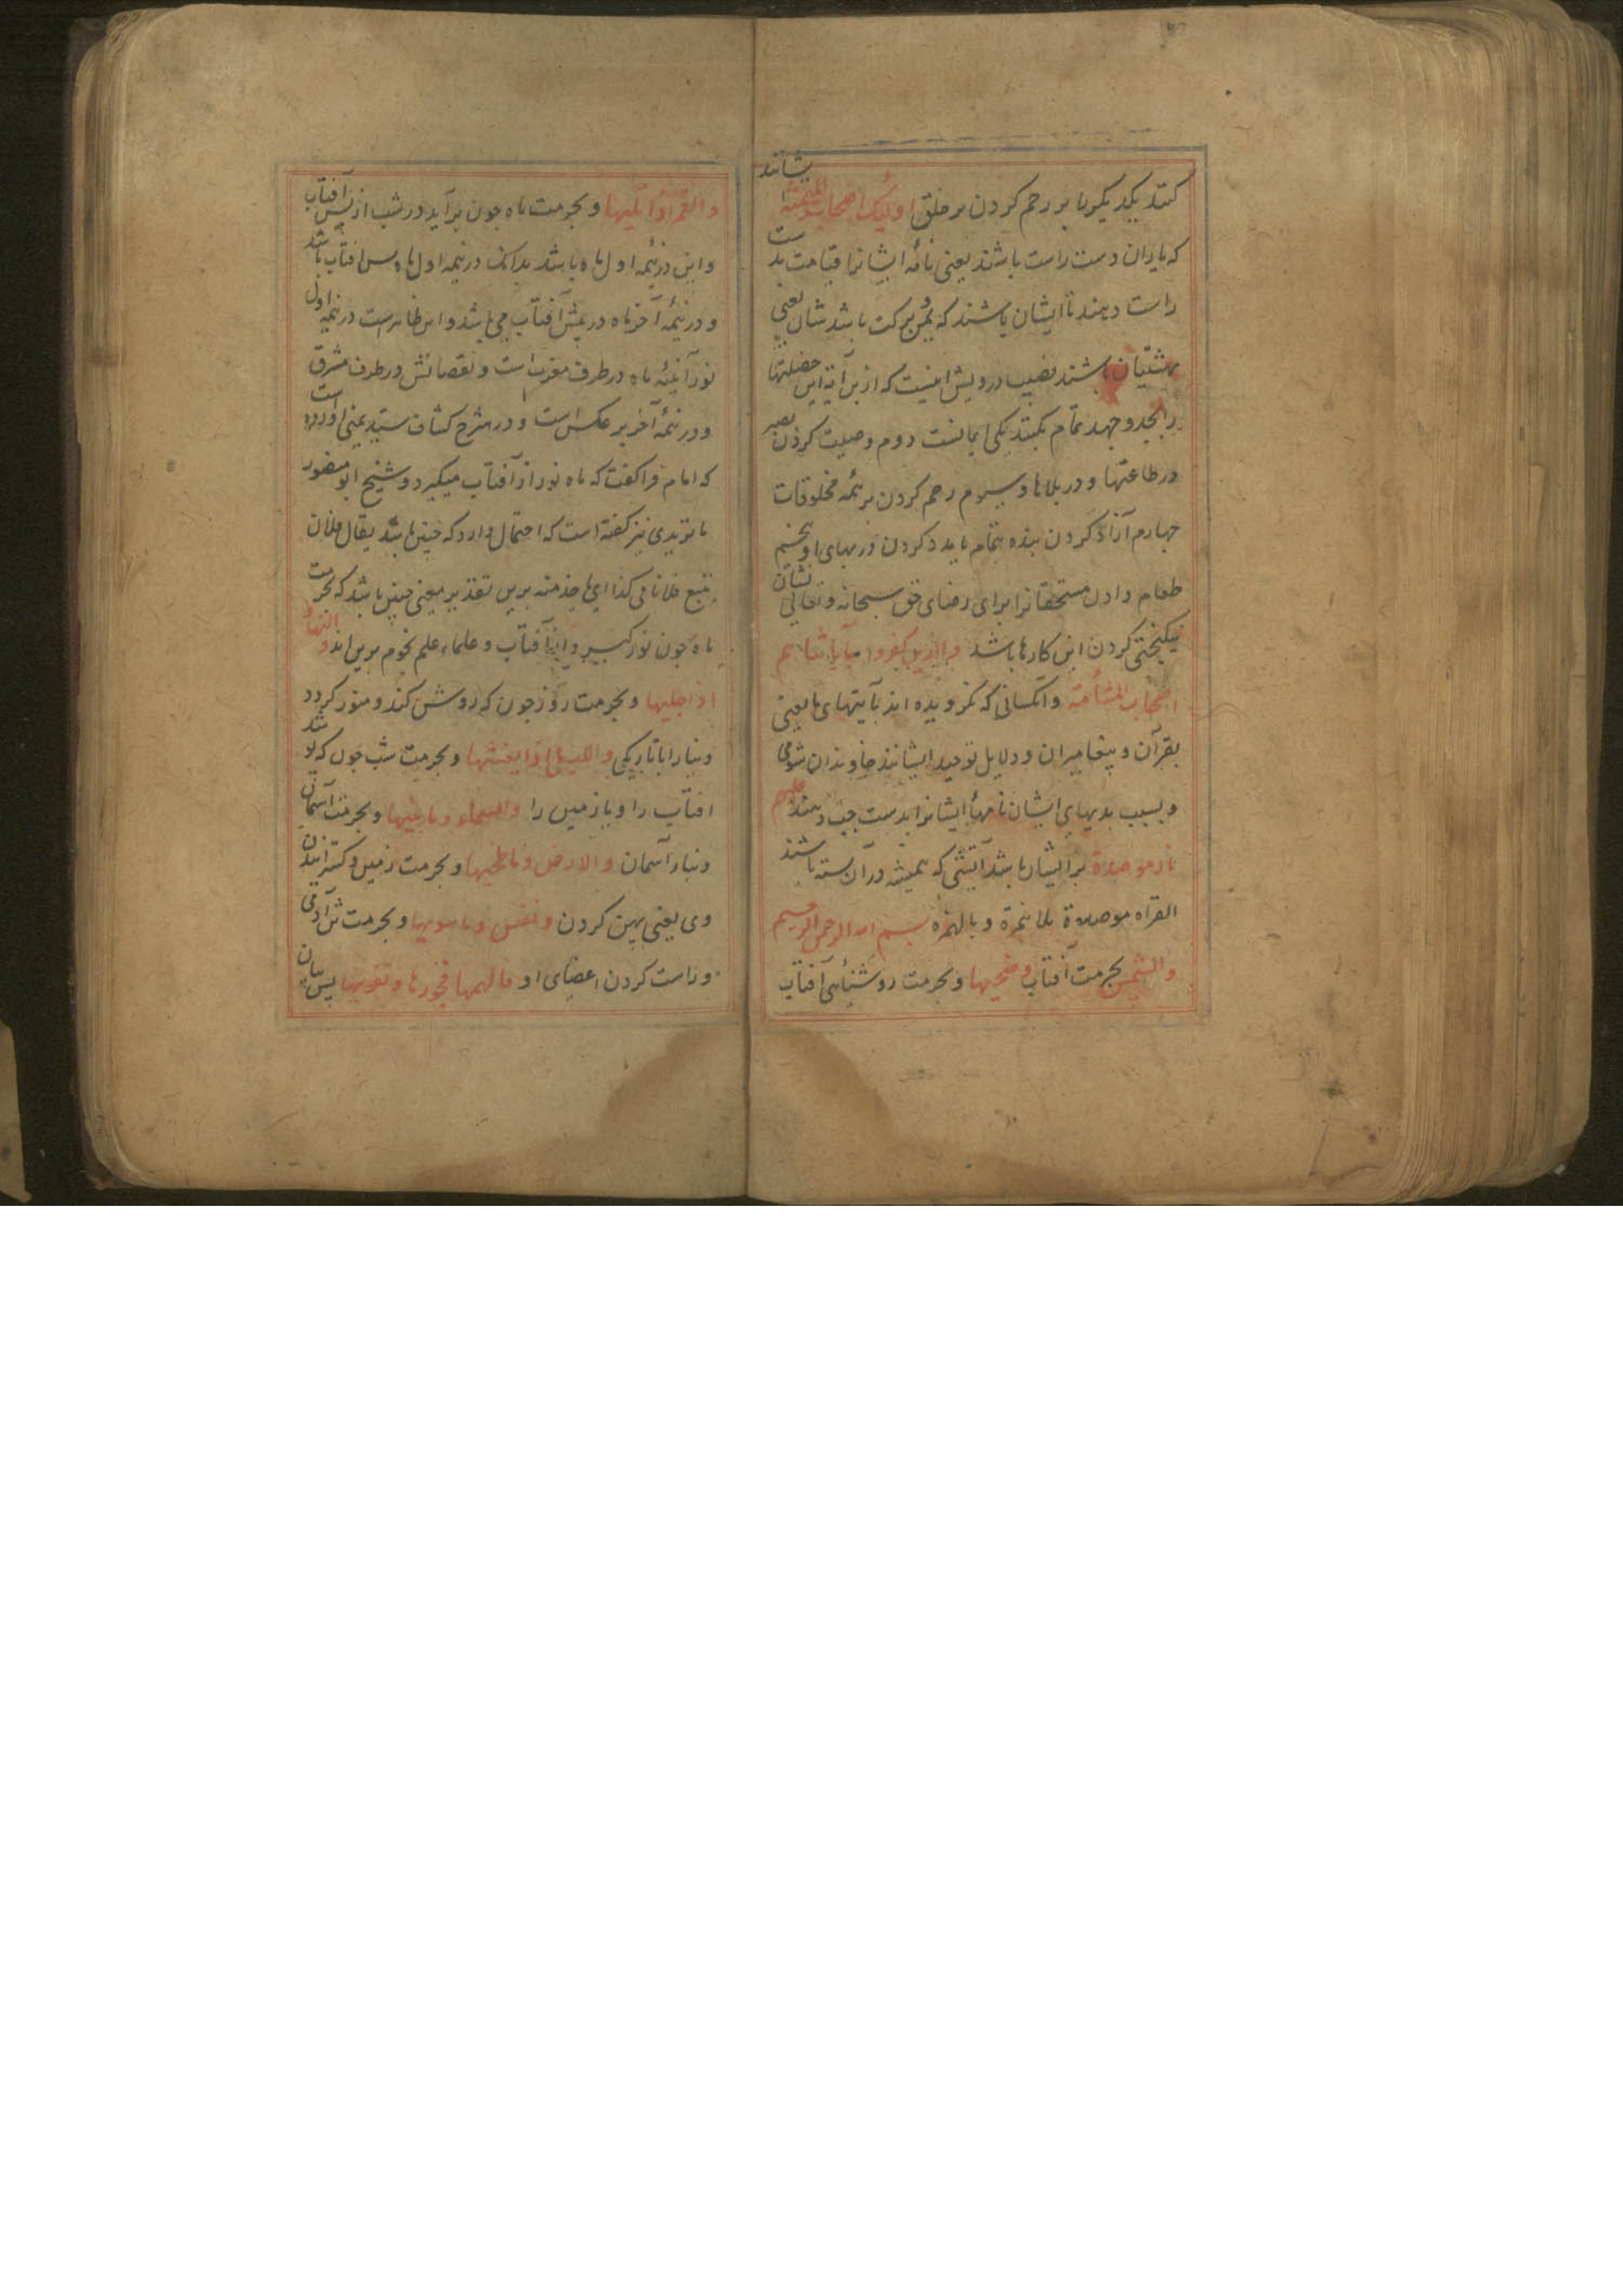 کنند یکدیکر را بر رحم کردن بر خلق اولئک اصحاب المیمنة ایشانند
که یاران دست راست باشند یعنی نامه ایشانرا قیامت بدست
راست دهند تا ایشان باشند که یمن و برکت باشد شان یعنی
بهشتیان باشند نصیب درویش اینست که ازین آیه این خصلتها
را بجد و جهد تمام بکند یکی ایمانست دوم وصیت کردن بصبر
در طاعتها و در بلاها و سیوم رحم کردن بر همه مخلوقات
چهارم آزاد کردن بنده بتمام یا مدد کردن در بهای او پنجم
طعام دادن مستحقانرا برای رضای حق سبحانه و تعالی نشان
نیکبختی کردن این کارها باشد والذین کفروا بآیاتنا هم
اصحاب المشأمة و آنکسانی که نکرویده اند بآیتهای ما یعنی
بقرآن و پیغامبران و دلایل توحید ایشانند خاوندان شومی
و بسبب بدیهای ایشان نامهٔ ایشانرا بدست چپ دهند علیهم
نار موصدة بر ایشان باشد آتشی که همیشه در آن بسته باشند
القراه موصدة بلا همزة و بالهمزه بسم الله الرحمن الرحیم
والشمس بحرمت آفتاب وضحیها و بحرمت روشنأیی آفتاب
والقمر اذا تلیها و بحرمت ماه چون برآید در شب از پس آفتاب
و این در نیمه اول ماه باشد بدانک در نیمه اول ماه پس افتاب باشد
و در نیمهٔ آخر ماه در پیش آفتاب می باشد و این ظاهرست در نیمه اول
نور آئینهٔ ماه در طرف مغرب است و نقصانش در طرف مشرق
و در نیمهٔ آخر بر عکس است و در شرح کشاف سید یمنی آورده است
که امام فرا کفت که ماه نور از آفتاب میکیرد و شیخ ابو منصور
ماتریدی نیز کفته است که احتمال دارد که چنین باشد یقال فلان
یتبع فلانا فی کذا ای یاخذ منه برین تقدیر معنی چنین باشد که بحرمت
ماه چون نور کیرد از آفتاب و علماء علم نجوم برین اند والنهار
اذا جلیها و بحرمت روز چون که روشن کند و منور کردد
دنیا را با تاریکی واللیل اذا یغشیها و بحرمت شب چون که پوشد
افتاب را و یا زمین را والسماء وما بنیها و بحرمت آسمان
و بناء آسمان والارض وما طحیها و بحرمت زمین و کسترانیدن
وی یعنی پهن کردن و نفس وما سویها و بحرمت تن آدمی
و راست کردن اعضای او فالهمها فجورها و تقویها پس بیان